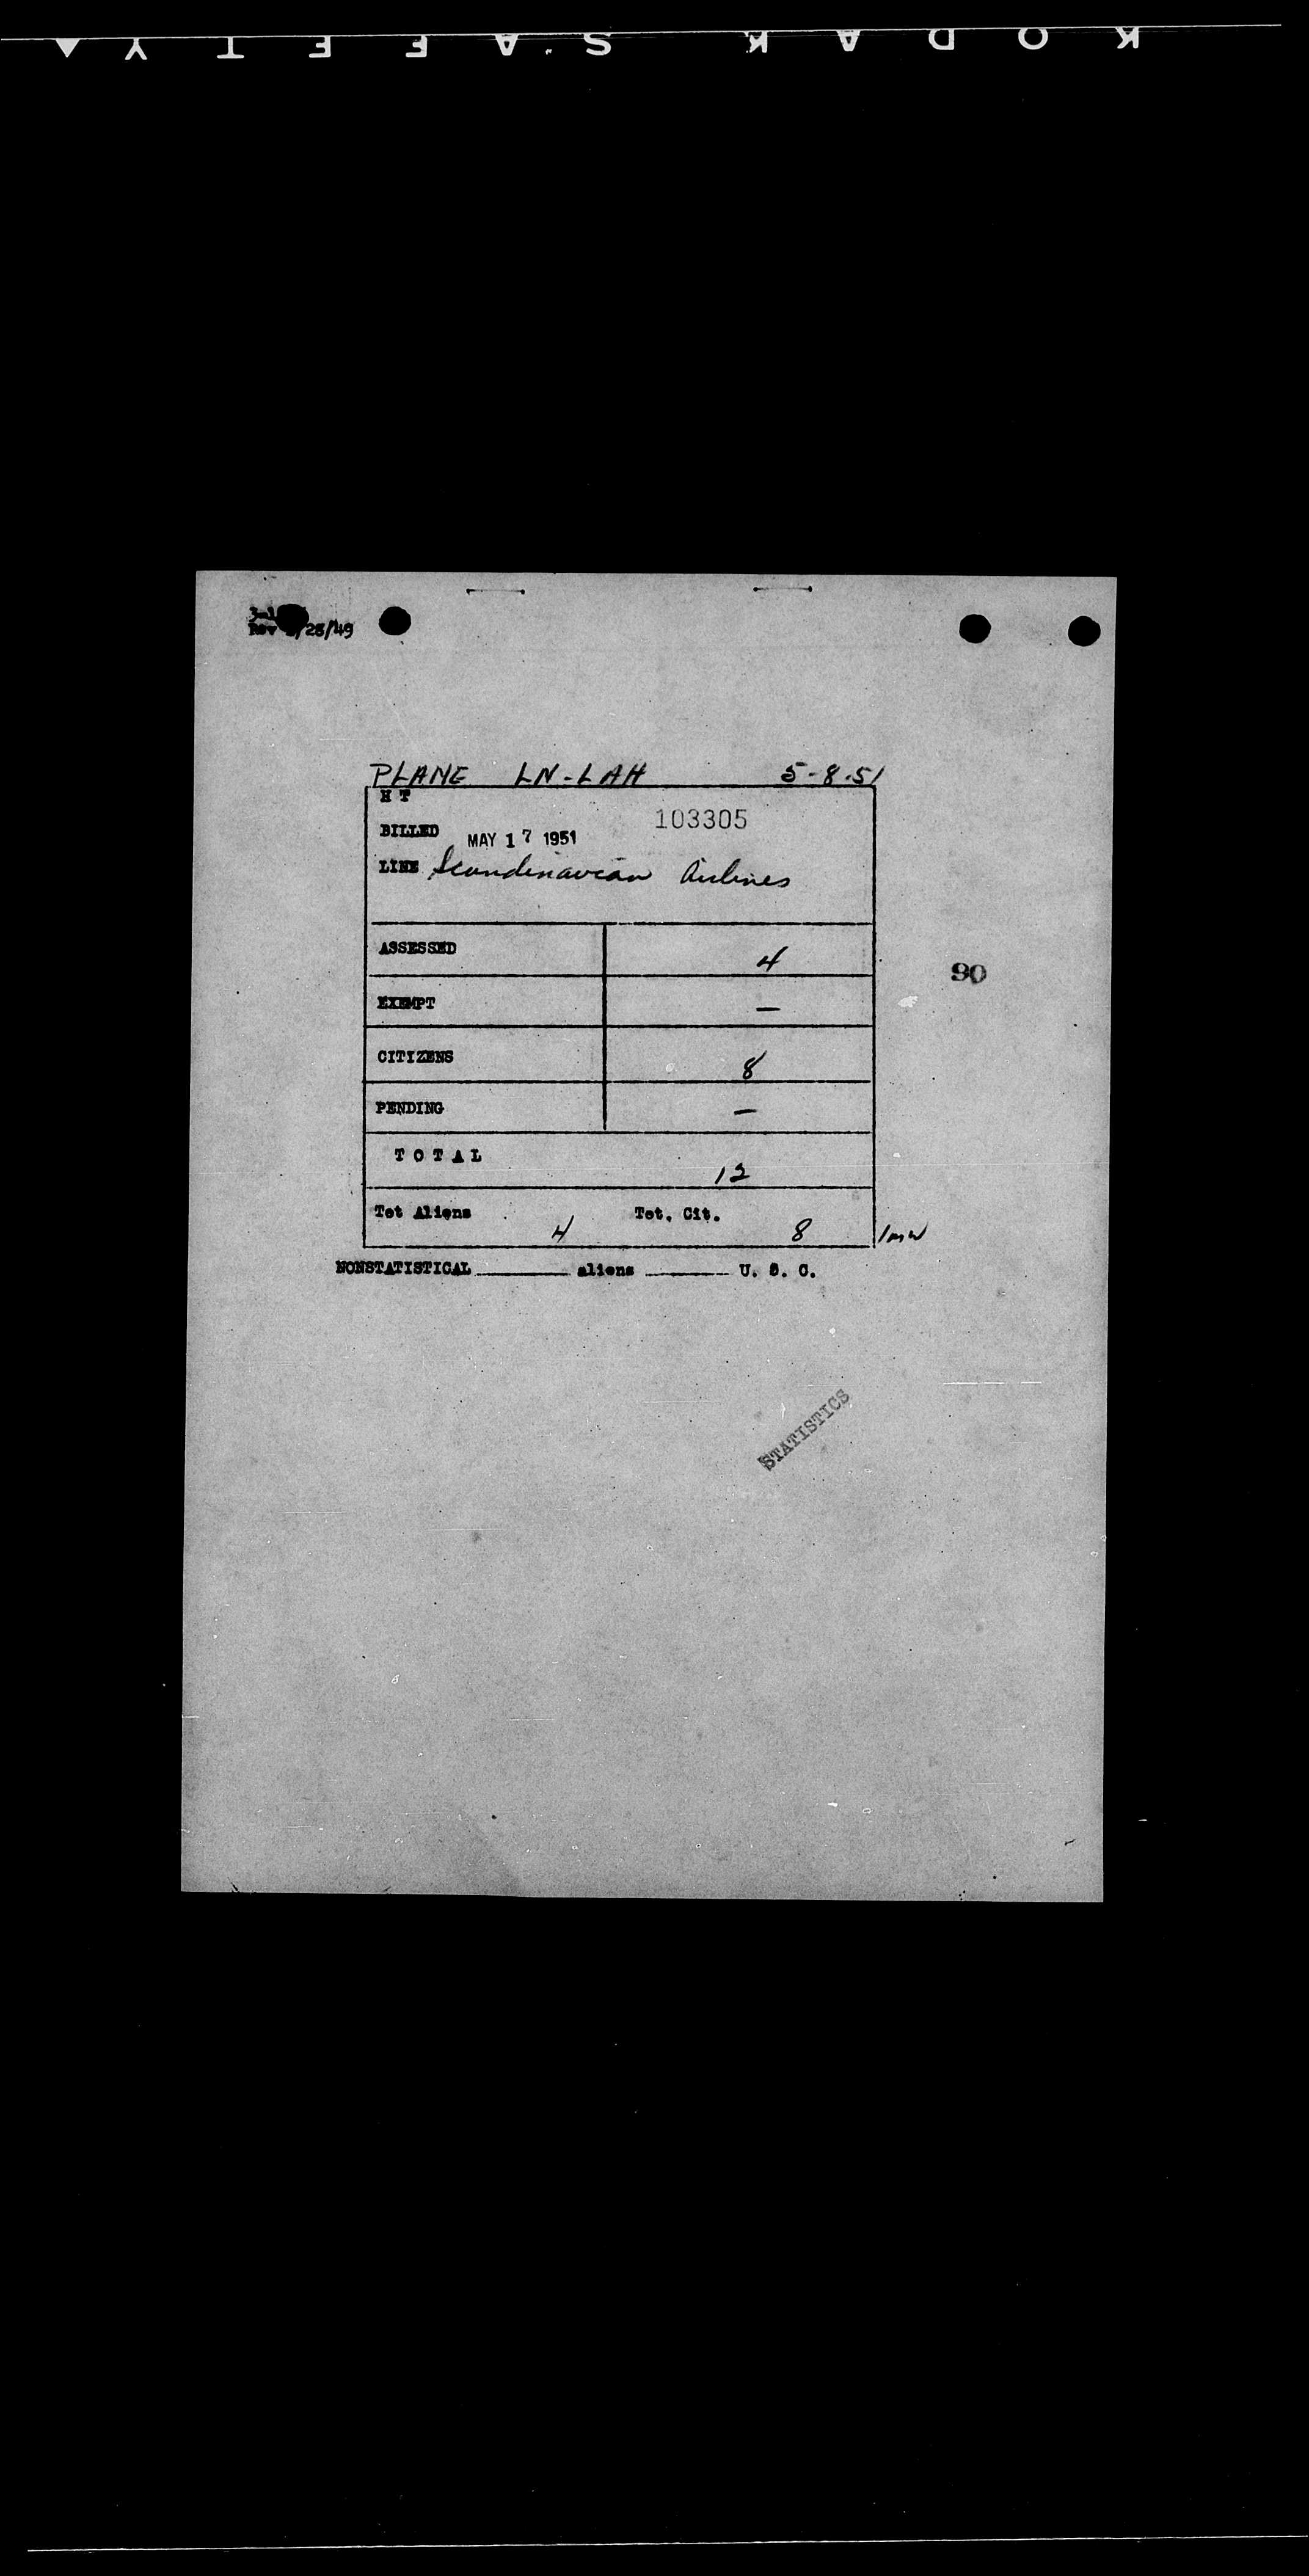 KODAK SAFETY
Rev /28/49
PLANE LN-LAH 5-8-51
H T
103305
BILLED MAY 17 1951
LINE Scandinavian Airlines
ASSESSED 4
90
EXEMPT —
CITIZENS 8
PENDING —
TOTAL
12
Tot Aliens 4 Tot. Cit. 8
NONSTATISTICAL ____ aliens ____ U. S. C.
STATISTICS